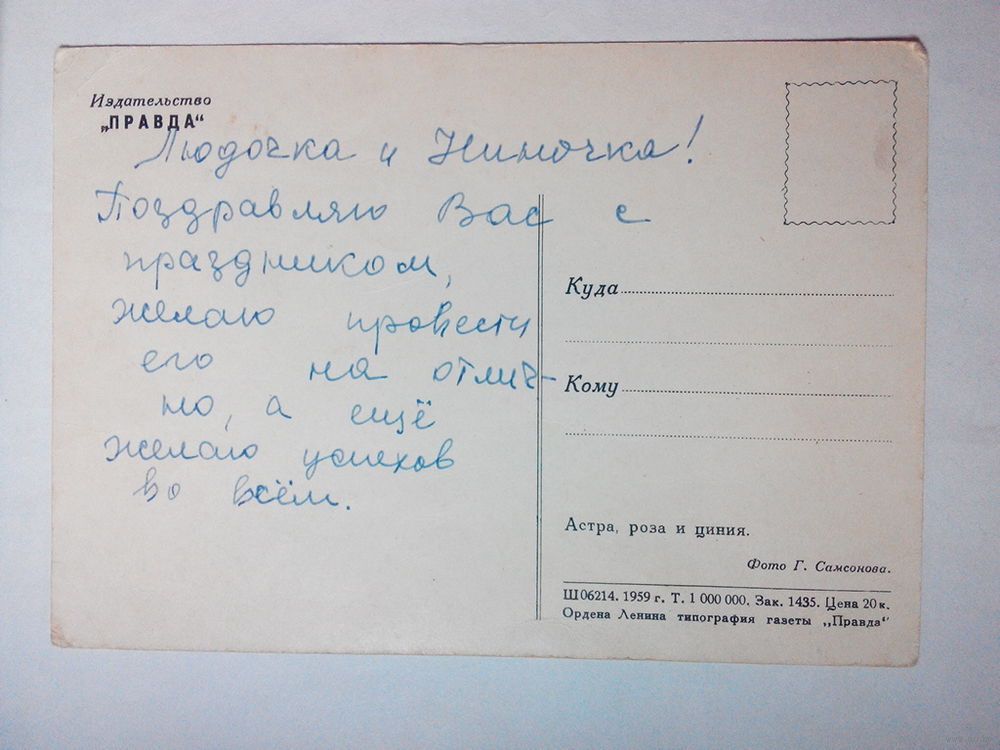 Издательство
„ПРАВДА“
Людочка и Ниночка!
Поздравляю Вас с
праздником,
желаю провести
его на отлич-
но, а ещё
желаю успехов
во всём.
Куда
Кому
Астра, роза и циния.
Фото Г. Самсонова.
Ш 06214. 1959 г. Т. 1 000 000. Зак. 1435. Цена 20 к.
Ордена Ленина типография газеты „Правда“